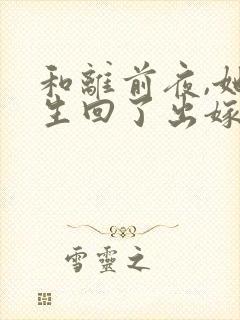 和離前夜,她
生回了出嫁
雪靈之